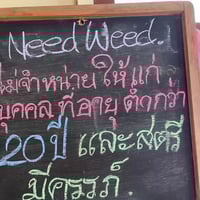 Need Weed.
ไม่จำหน่ายให้แก่
บุคคลที่อายุต่ำกว่า
20 ปี และสตรี
มีครรภ์.